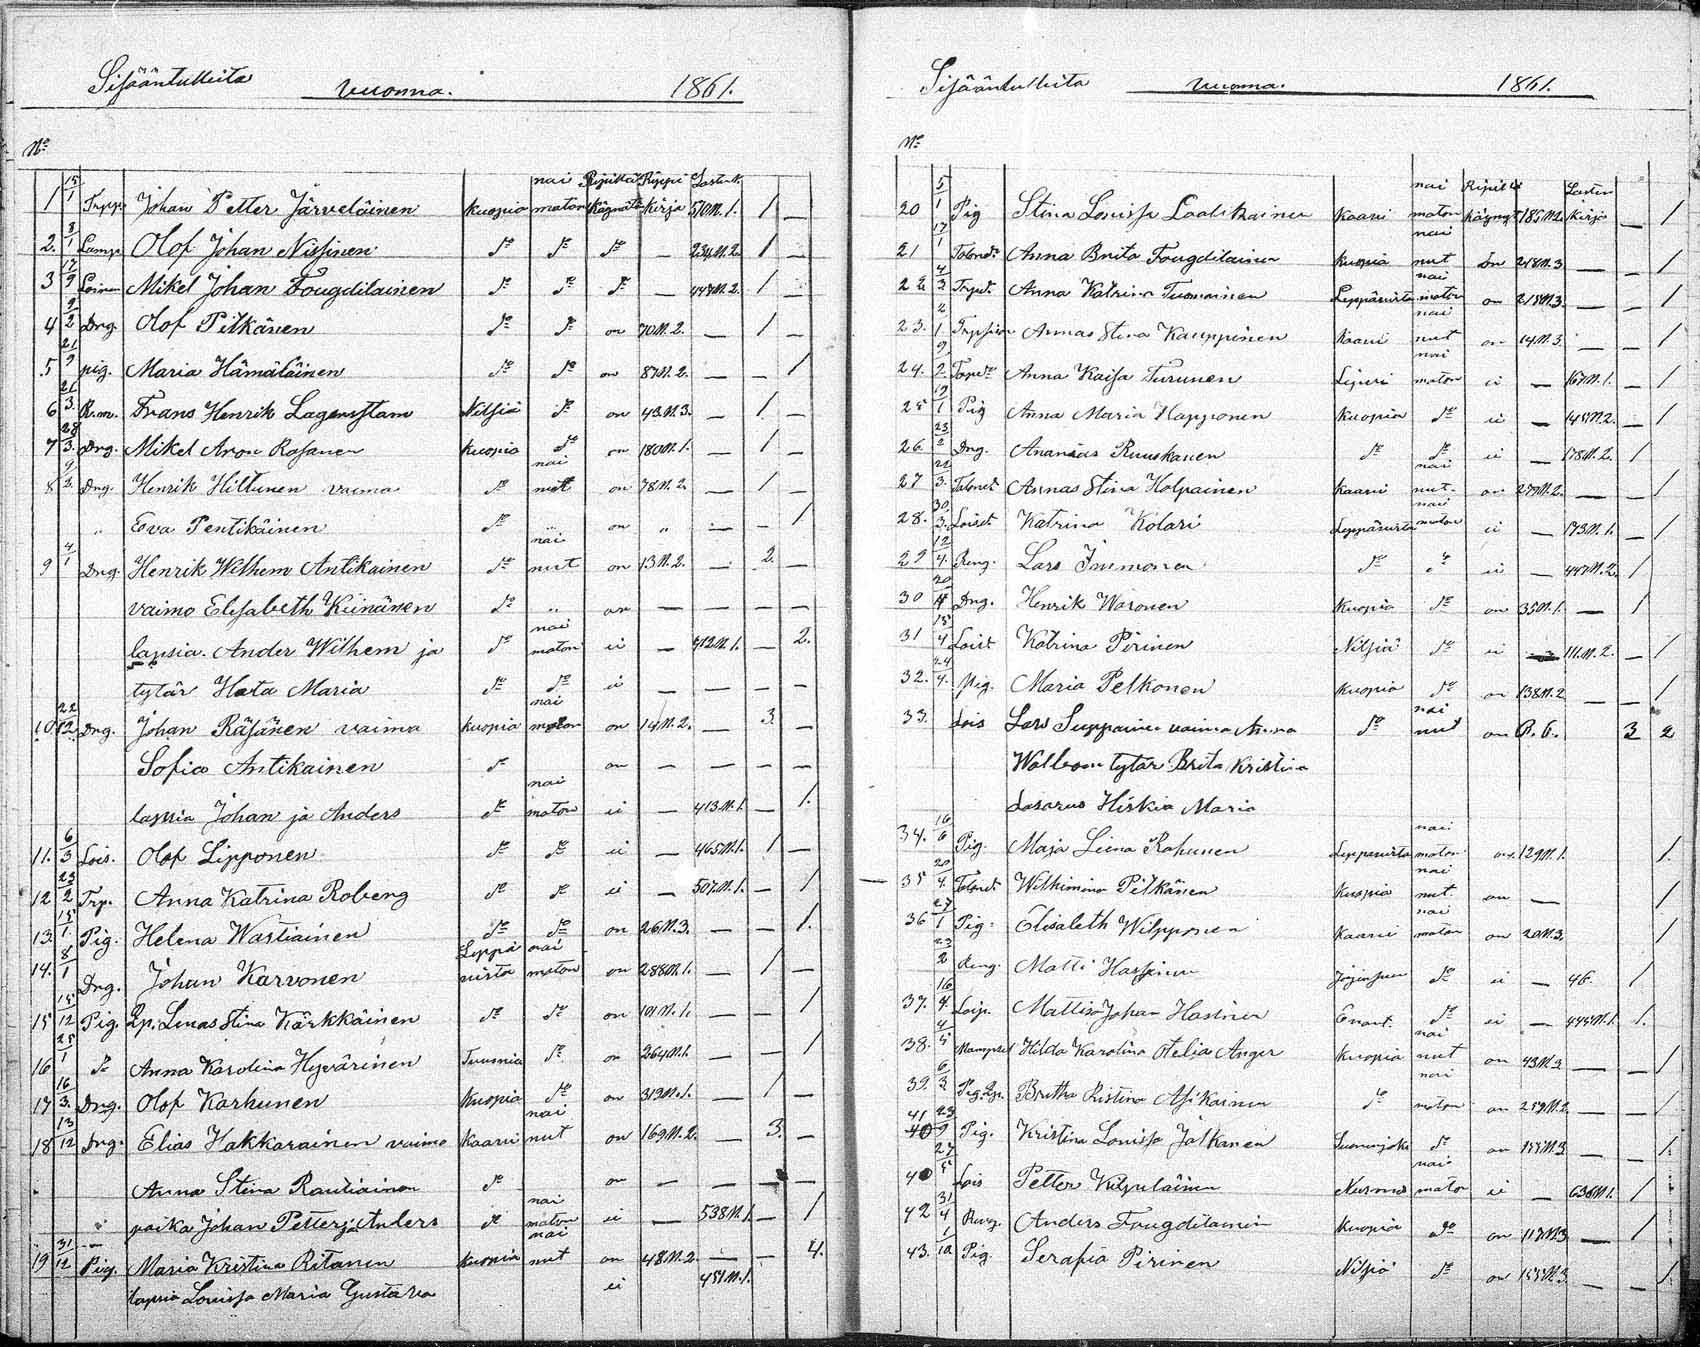 Sisääntulleita vuonna. 1861.
No
nai Ripillä Rippi Lasten K.
1 15/1 Johan Petter Järveläinen Kuopio maton käynyt kirja 510 N.1. 1 —
2. 3/1 Lamp. Olof Johan Nissinen do do do — 234 N.2. 1 —
3 17/9 Loinen Mikel Johan Fougdilainen do do do — 448 N.2. 1
4 9/2 Dng. Olof Pitkänen do do on 70 N.2. — 1 —
5 21/9 pig. Maria Hämäläinen do do on 87 N.2. — — 1
6 21/3. R.m. Frans Henrik Lagerstam Nilsiä do on 43 N.3. — 1. —
7 28/3. Dng. Mikel Aron Rasanen Kuopio do on 180 N.1. — 1 —
nai
8 9/3. Dng. Henrik Hiltunen vaimo do nut on 78 N.2. — 1 —
" Eva Pentikäinen do " on " — — 1
nai
9 4/1 Dng. Henrik Wilhem Antikainen do nut on 13 N.2. — 2. —
vaimo Elisabeth Kiinänen do " on — — — —
nai
lapsia. Ander Wilhem ja do maton ei — 412 N.1. — 2.
tytär Heta Maria do do ei — — — —
nai
10. 22/12 Dng. Johan Räsänen vaimo Kuopio maton on 14 N.2. — 3. —
Sofia Antikainen do on — — — —
nai
lapsia Johan ja Anders do maton ei — 413 N.1. — 1.
11. 6/3 Lois. Olof Lipponen do do ei — 465 N.1. 1 —
12 23/2 Trp. Anna Katrina Roberg do do ei — 507 N.1. — 1
13. 15/1. Pig. Helena Wastiainen do do on 26 N.3. — — 1.
Leppä nai
14. 8/1 Dng. Johan Karvonen virta maton on 288 N.1. — 1 —
15 15/12 Pig. Lp. Lenas Stina Kärkkäinen do do on 101 N.1. — — 1
16 25/1 do Anna Karolina Hyvärinen Tuusnia do on 264 N.1. — — 1
17 16/3. Dng. Olof Karhunen Kuopio do on 319 N.1. — 1 —
nai
18 13/12 Dng. Elias Hakkarainen vaimo Kaavi nut on 169 N.2. — 3. —
Anna Stina Rautiainen do on — — — —
nai
poika Johan Petter ja Anders do maton ei — 538 N.1. — 1
nai
19 31/12 Pig. Maria Kristina Ritanen Kuopio nut on 48 N.2 — — 4.
lapsia Louisa Maria Gustava ei 451 N.1.
Sisääntulleita vuonna. 1861.
No
nai Ripillä Lasten
20 5/1 Pig Stina Louisa Laatikainen Kaavi maton käynyt 185 N.2. kirja — 1
nai
21 17/1 Anna Brita Fougdilainen Kuopio nut on 218 N.3 — — 1
nai
22 4/3 Anna Katrina Tuomainen Leppävirta maton on 215 N.3. — — 1
nai
23. 2/1 Annas Stina Kauppinen Kaavi nut on 14 N.3. — — 1
nai
24. 9/2. Anna Kaisa Turunen Liperi maton ei — 167 N.1. — 1
25 19/1 Pig Anna Maria Happonen Kuopio do ei — 145 N.2. — 1
26. 23/2 Dng. Ananias Ruuskanen do do ei — 178 N.2. 1
nai
27 21/3. Annas Stina Holpainen Kaavi nut. on 279 N.2. — — 1
nai
28. 30/3. Loiset Katrina Kolari Leppävirta maton ei — 173 N.1. — 1
29 12/4. Reng. Lars Immonen do do ei — 447 N.2. 1
30 20/4 Dng. Henrik Woronen Kuopio do on 35 N.1. — 1
31 15/4 Loist Katrina Pirinen Nilsiä do ei — 111 N.2. — 1
32. 24/4. Pig. Maria Pelkonen Kuopio do on 138 N.2 — — 1
nai
33. Lois Lars Suppainen vaimo Anna do nut on P. 6. 3 2
tytär Brita Kristina
Lasarus Hiskia Maria
nai
34. 16/6 Pig. Maja Liena Rahunen Leppavirta maton on 129 N.1. 1.
nai
35 20/4. Wilhimina Pitkänen Kuopio nut on — 1
nai
36 27/1 Pig. Elisabeth Wilpponen Kaavi maton on 20 N.3. 1
23/2 Reng. Matti do ei — 46. 1
37. 16/4. Loip. Mattis Johan do ei — 445 N.1. 1.
nai
38. 4/5 Mampsel Hilda Karolina Otelia Anger Kuopio nut on 43 N.3 — — 1
nai
39. 6/3 Pig. Lp. Britha Kristina Asikainen do maton on 259 N.2. — — 1
41 23/9 Pig. Kristina Louisa Jalkanen do on 155 N.3 — — 1.
nai
40 27/5 Lois Petter Kilpeläinen Nurmes maton ei — 636 N.1. 1
42 31/4 Reng. Anders Fougdilainen Kuopio do on 117 N.3 — 1
43. 1/10 Pig. Serafia Pirinen Nilsiä do on 155 N.3. — — 1